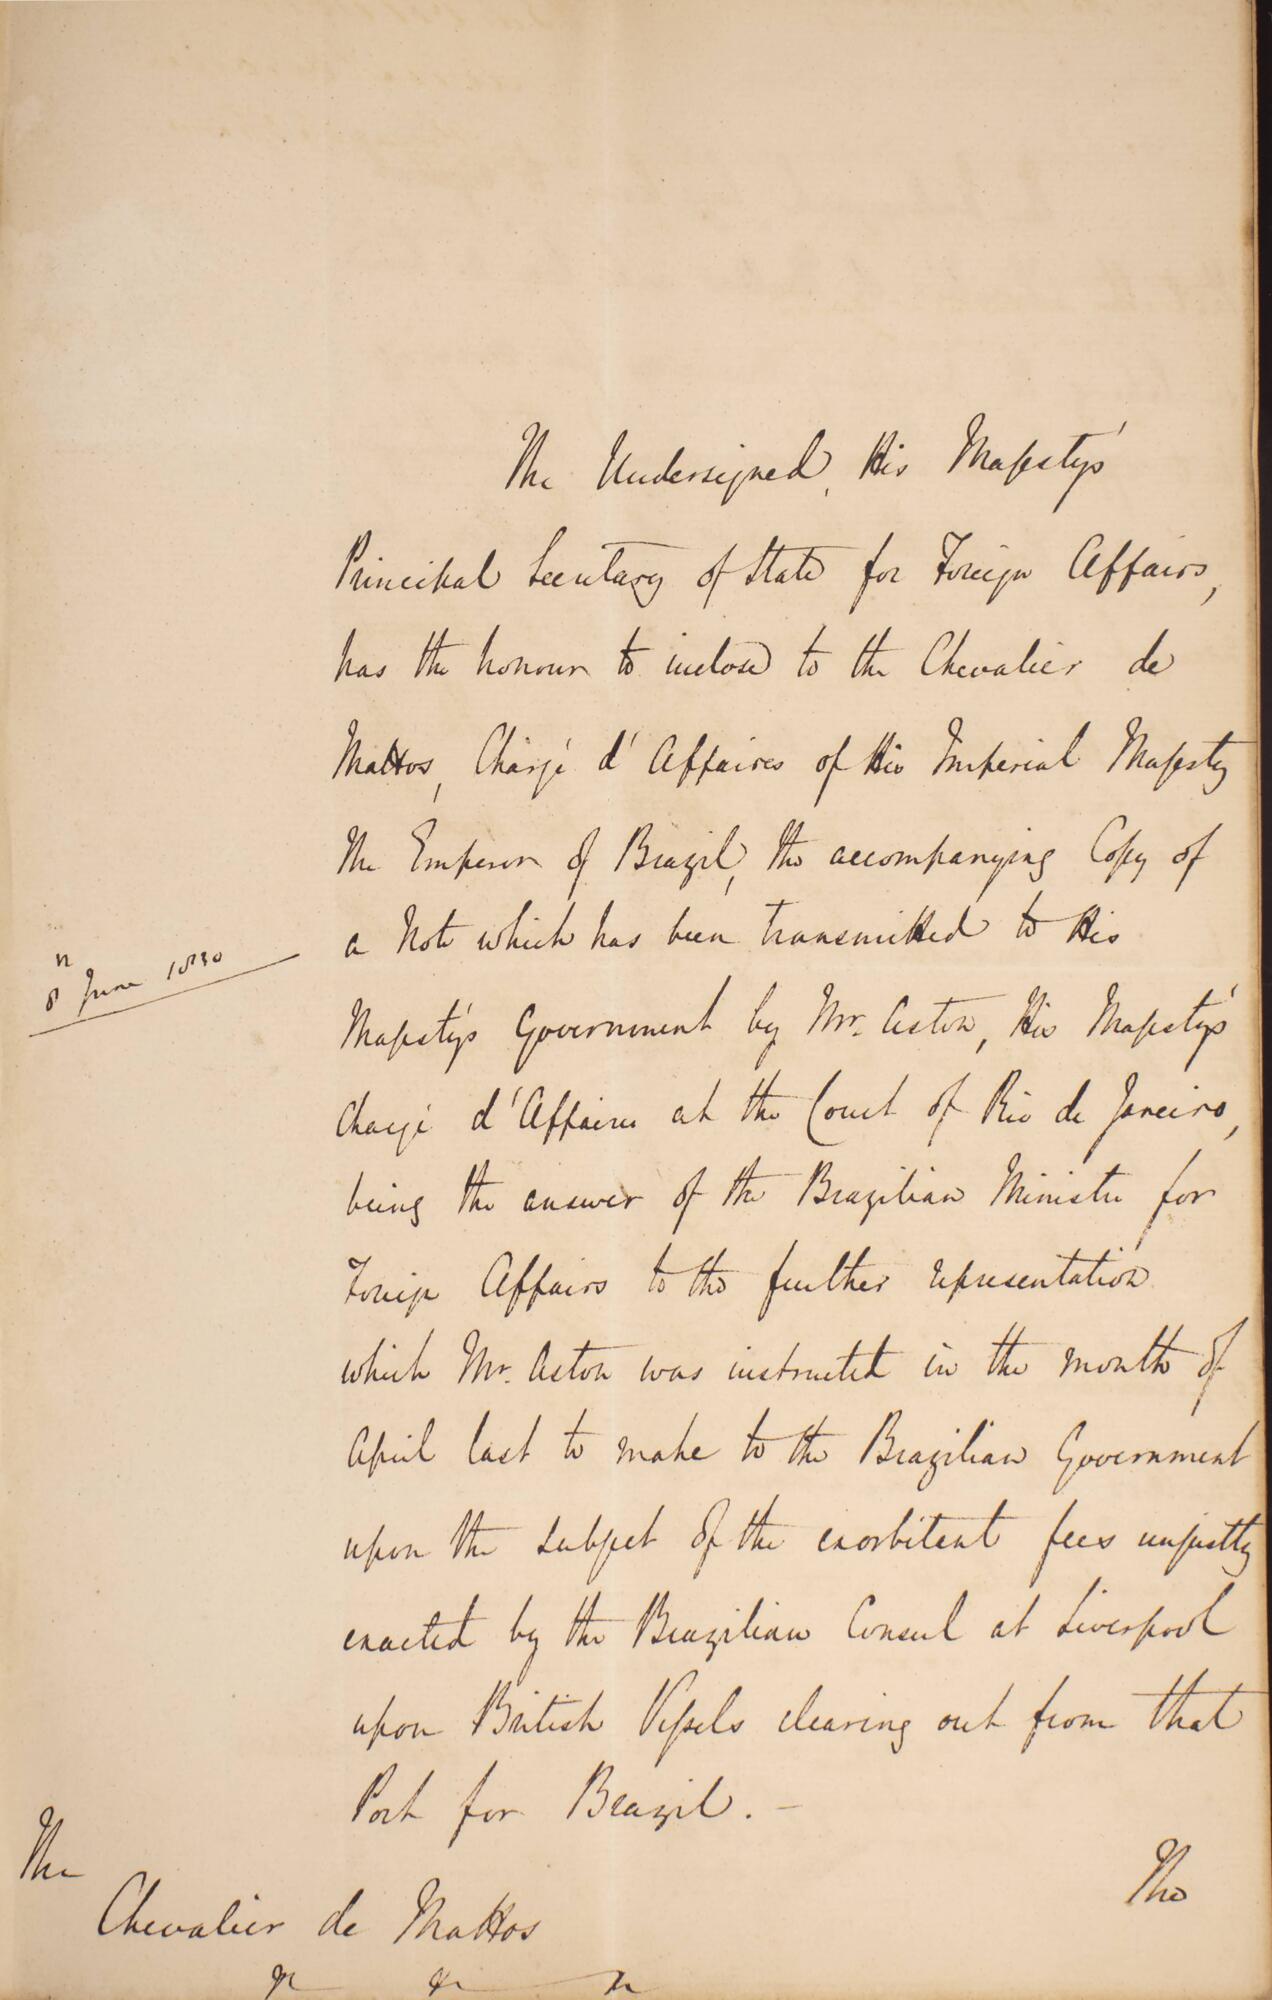 The Undersigned, His Majesty's
Principal Secretary of State for Foreign Affairs,
has the honour to inclose to the Chevalier de
Mattos, Chargé d'Affaires of His Imperial Majesty
The Emperor of Brazil, the accompanying Copy of
a Note which has been transmitted to His
8th June 1830
Majesty's Government by Mr. Aston, His Majesty's
Chargé d'Affaires at the Court of Rio de Janeiro,
being the answer of the Brazilian Minister for
Foreign Affairs to the further representation
which Mr. Aston was instructed in the month of
April last to make to the Brazilian Government
upon the subject of the exorbitant fees unjustly
exacted by the Brazilian Consul at Liverpool
upon British Vessels clearing out from that
Port for Brazil. –
The
The
Chevalier de Mattos